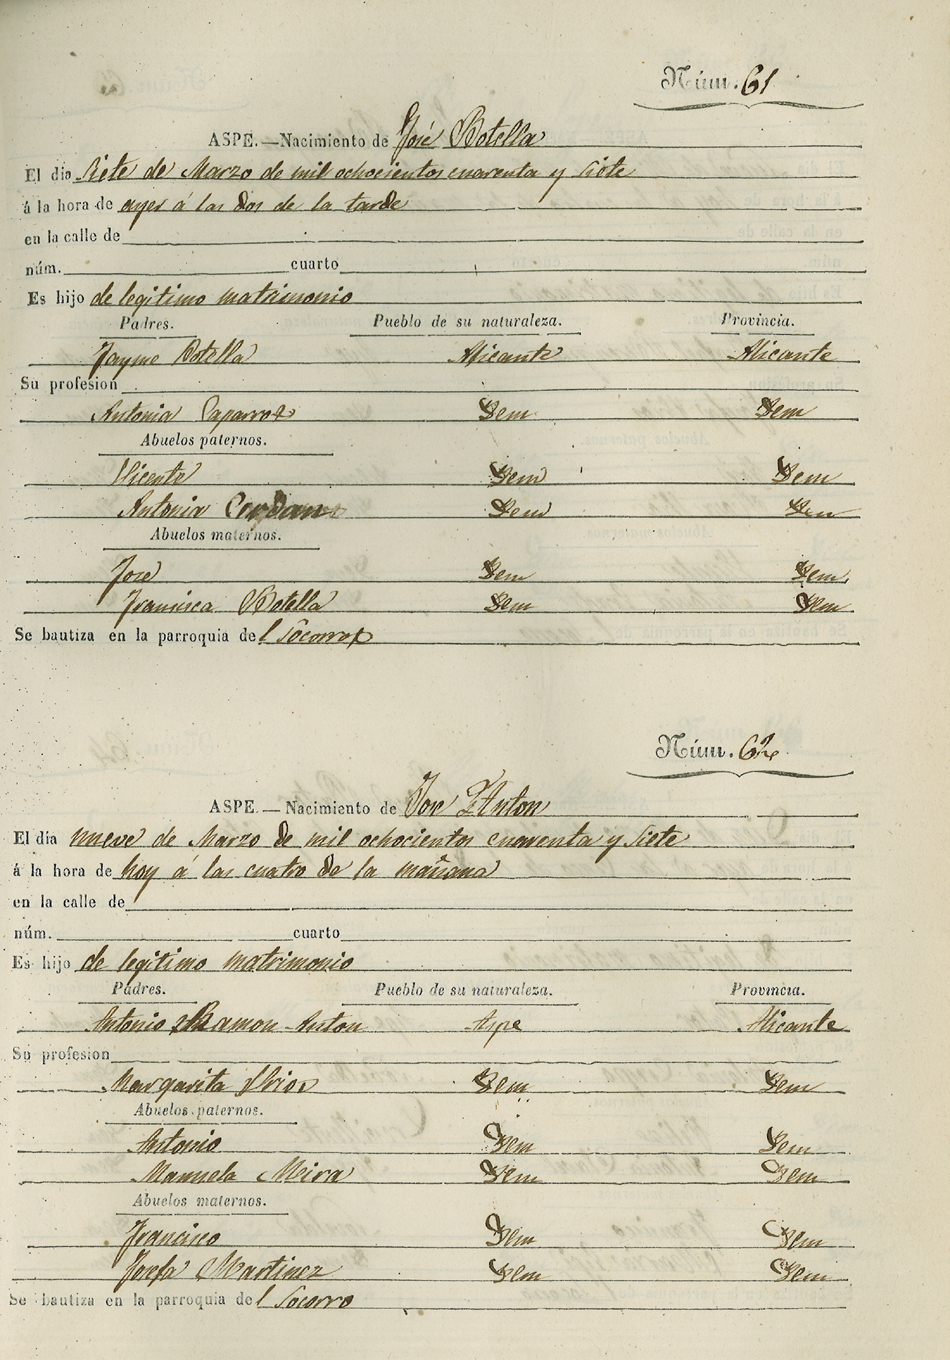 Núm. 61
ASPE.—Nacimiento de José Botella
El dia Siete de Marzo de mil ochocientos cuarenta y Siete
á la hora de ayer á las dos de la tarde
en la calle de
núm. cuarto
Es hijo de legitimo matrimonio
Padres. Pueblo de su naturaleza. Provincia.
Jayme Botella Alicante Alicante
Su profesion
Antonia Caparros Idem Idem
Abuelos paternos.
Vicente Idem Idem
Antonia Cerdan Idem Idem
Abuelos maternos.
José Idem Idem
Francisca Botella Idem Idem
Se bautiza en la parroquia del Socorro
Núm. 62
ASPE.—Nacimiento de José Anton
El dia nueve de Marzo de mil ochocientos cuarenta y Siete
á la hora de hoy á las cuatro de la mañana
en la calle de
núm. cuarto
Es hijo de legitimo matrimonio
Padres. Pueblo de su naturaleza. Provincia.
Antonio Ramon Anton Aspe Alicante
Su profesion
Margarita Idem Idem
Abuelos paternos.
Antonio Idem Idem
Manuela Mira Idem Idem
Abuelos maternos.
Francisco Idem Idem
Josefa Martinez Idem Idem
Se bautiza en la parroquia del Socorro